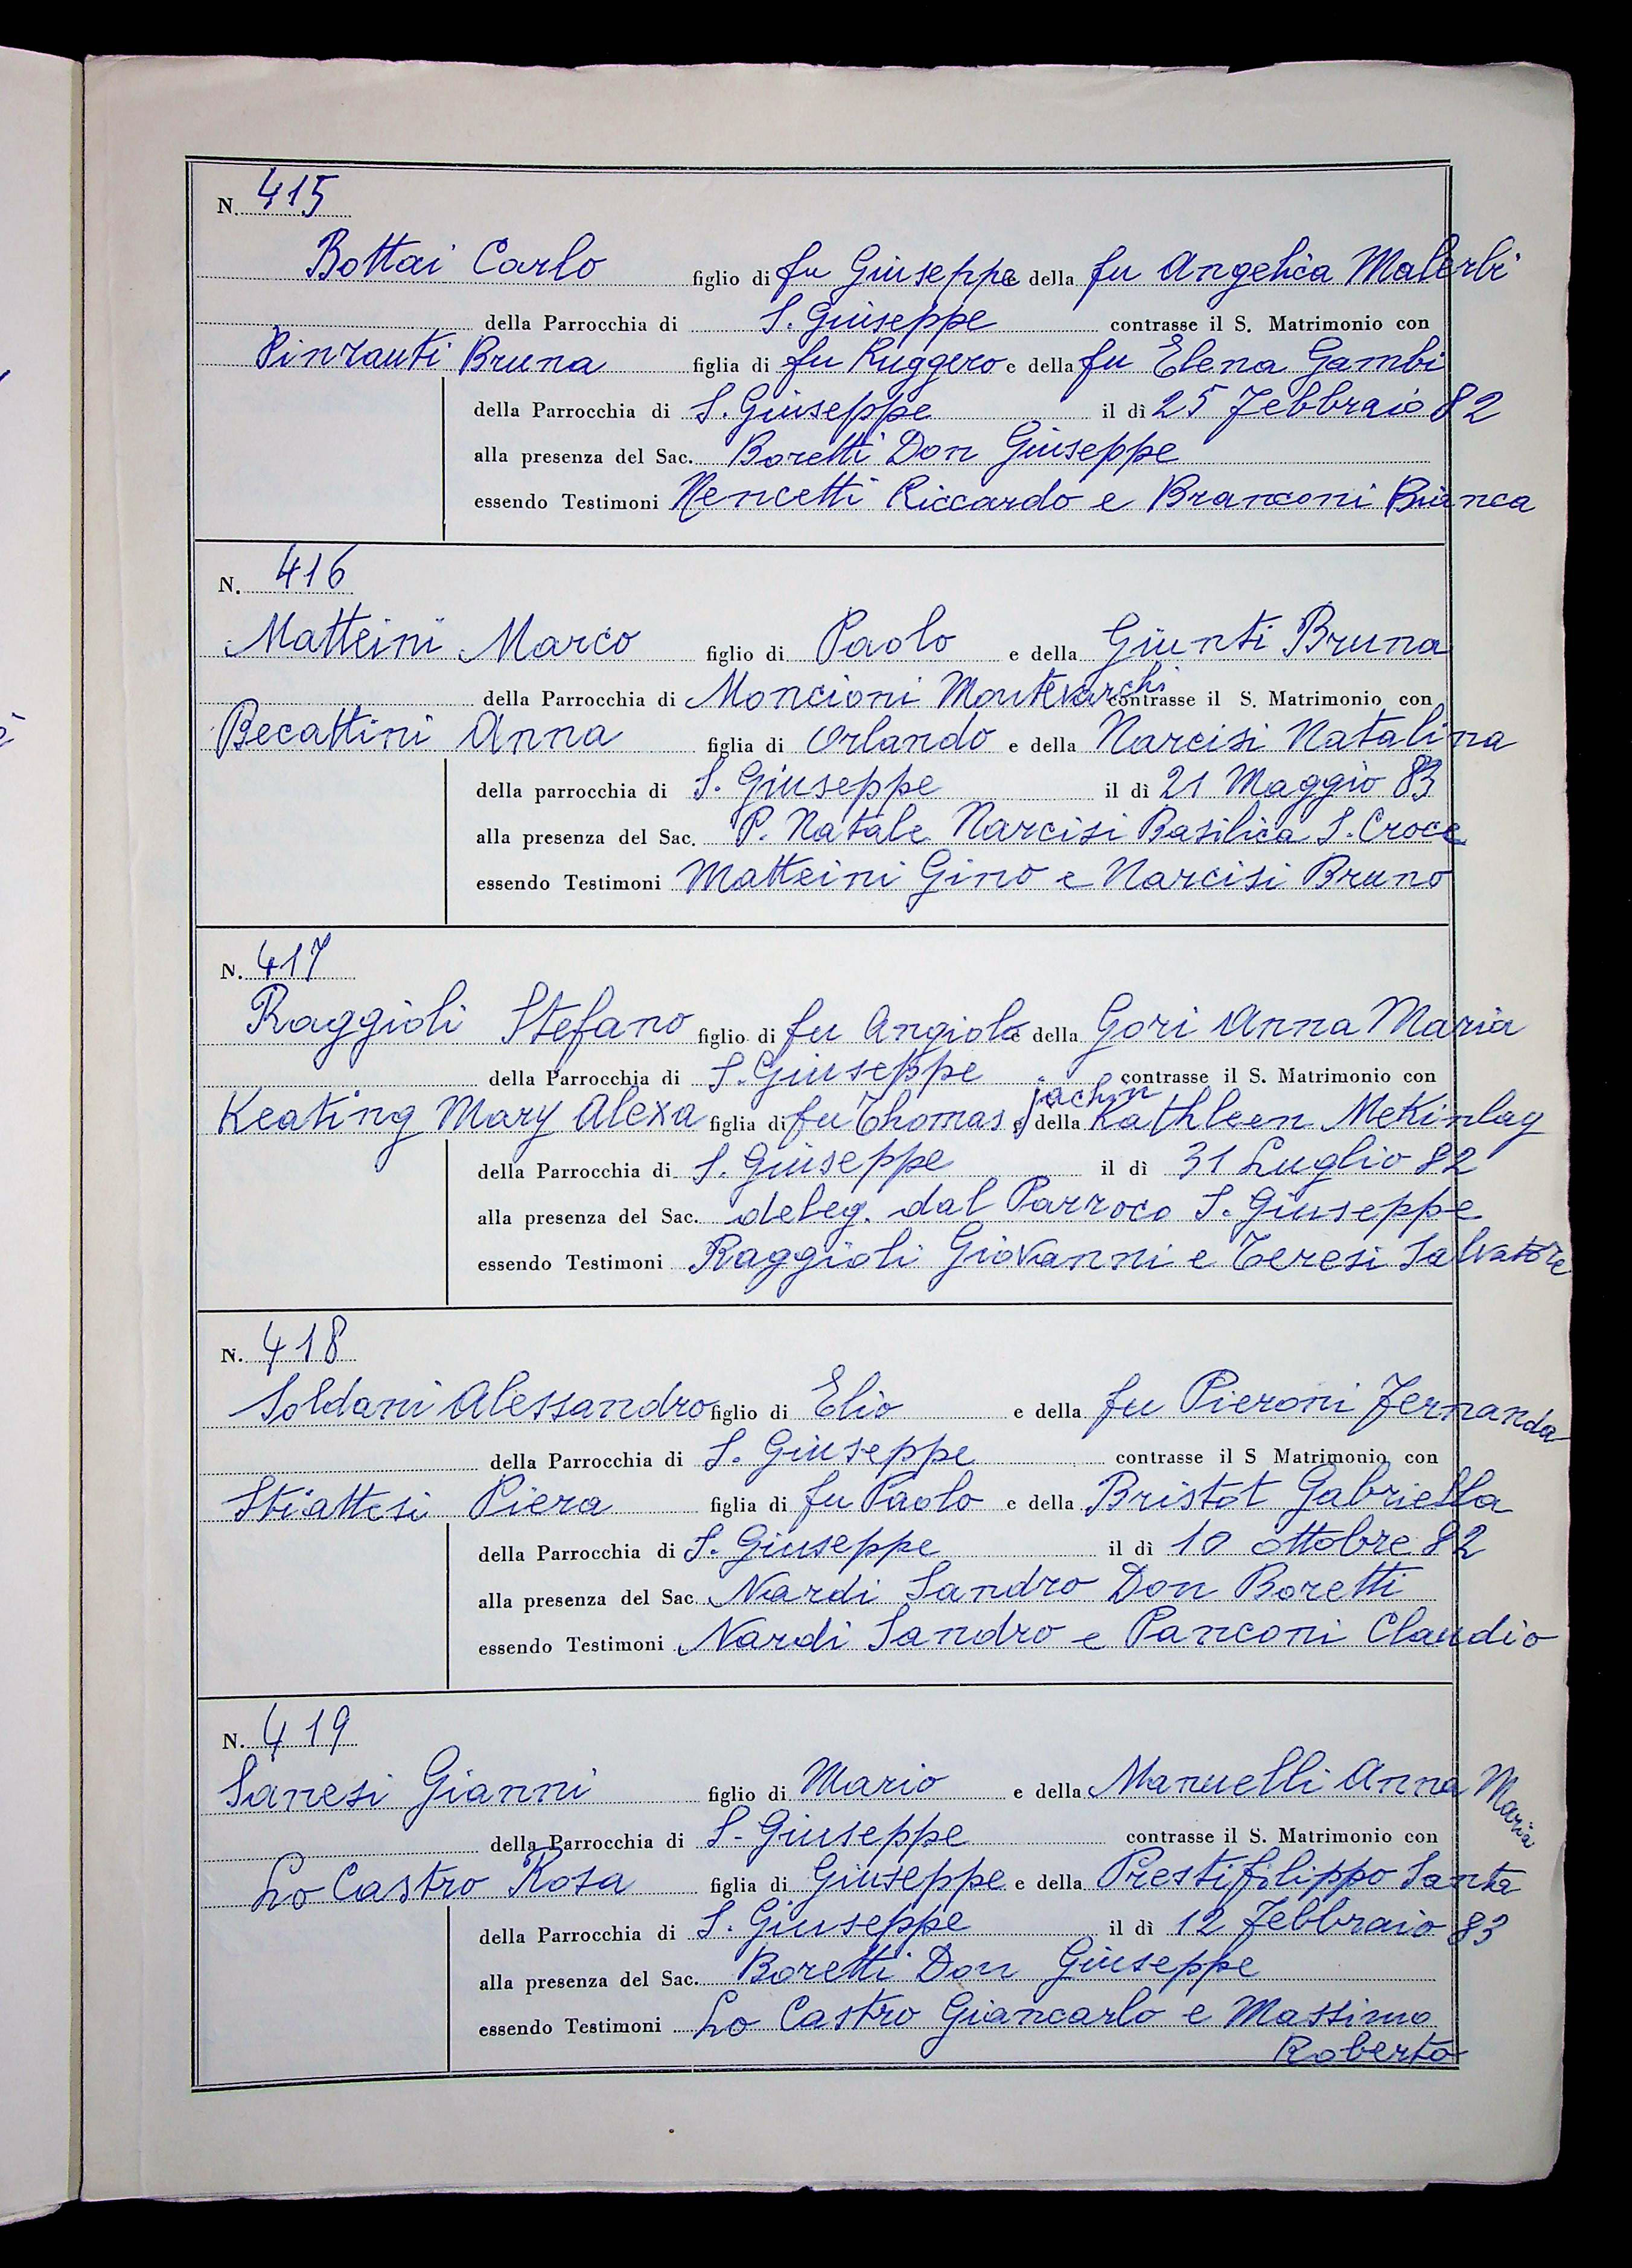 N. 415
Bottai Carlo figlio di fu Giuseppe e della fu Angelica Malerbi
della Parrocchia di S. Giuseppe contrasse il S. Matrimonio con
Pinzauti Bruna figlia di fu Ruggero e della fu Elena Gambi
della Parrocchia di S. Giuseppe il dì 25 Febbraio 82
alla presenza del Sac. Boretti Don Giuseppe
essendo Testimoni Nencetti Riccardo e Branconi Bianca
N. 416
Matteini Marco figlio di Paolo e della Giunti Bruna
della Parrocchia di Moncioni Montevarchi contrasse il S. Matrimonio con
Becattini Anna figlia di Orlando e della Narcisi Natalina
della parrocchia di S. Giuseppe il dì 21 Maggio 83
alla presenza del Sac. P. Natale Narcisi Basilica S. Croce
essendo Testimoni Matteini Gino e Narcisi Bruno
N. 417
Raggioli Stefano figlio di fu Angiolo e della Gori Anna Maria
della Parrocchia di S. Giuseppe contrasse il S. Matrimonio con
jachin
Keating Mary Alexa figlia di fu Thomas e della Kathleen McKinlay
della Parrocchia di S. Giuseppe il dì 31 Luglio 82
alla presenza del Sac. deleg. dal Parroco S. Giuseppe
essendo Testimoni Raggioli Giovanni e Teresi Salvatore
N. 418
Soldani Alessandro figlio di Elio e della fu Pieroni Fernanda
della Parrocchia di S. Giuseppe contrasse il S Matrimonio con
Stiattesi Piera figlia di fu Paolo e della Bristot Gabriella
della Parrocchia di S. Giuseppe il dì 10 ottobre 82
alla presenza del Sac. Nardi Sandro Don Boretti
essendo Testimoni Nardi Sandro e Panconi Claudio
N. 419
Sanesi Gianni figlio di Mario e della Manuelli Anna Maria
della Parrocchia di S. Giuseppe contrasse il S. Matrimonio con
Lo Castro Rosa figlia di Giuseppe e della Prestifilippo Santa
della Parrocchia di S. Giuseppe il dì 12 Febbraio 83
alla presenza del Sac. Boretti Don Giuseppe
essendo Testimoni Lo Castro Giancarlo e Massimo
Roberto